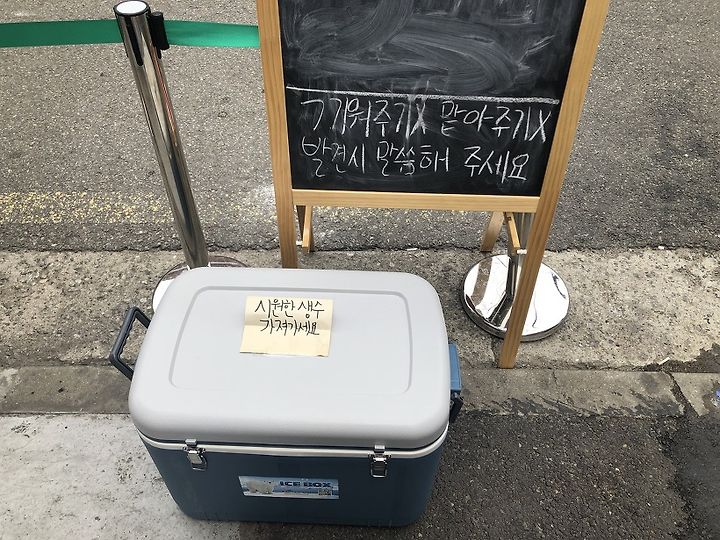 끼워주기X 맡아주기X
발견시 말씀해 주세요
시원한 생수
가져가세요
ICE BOX